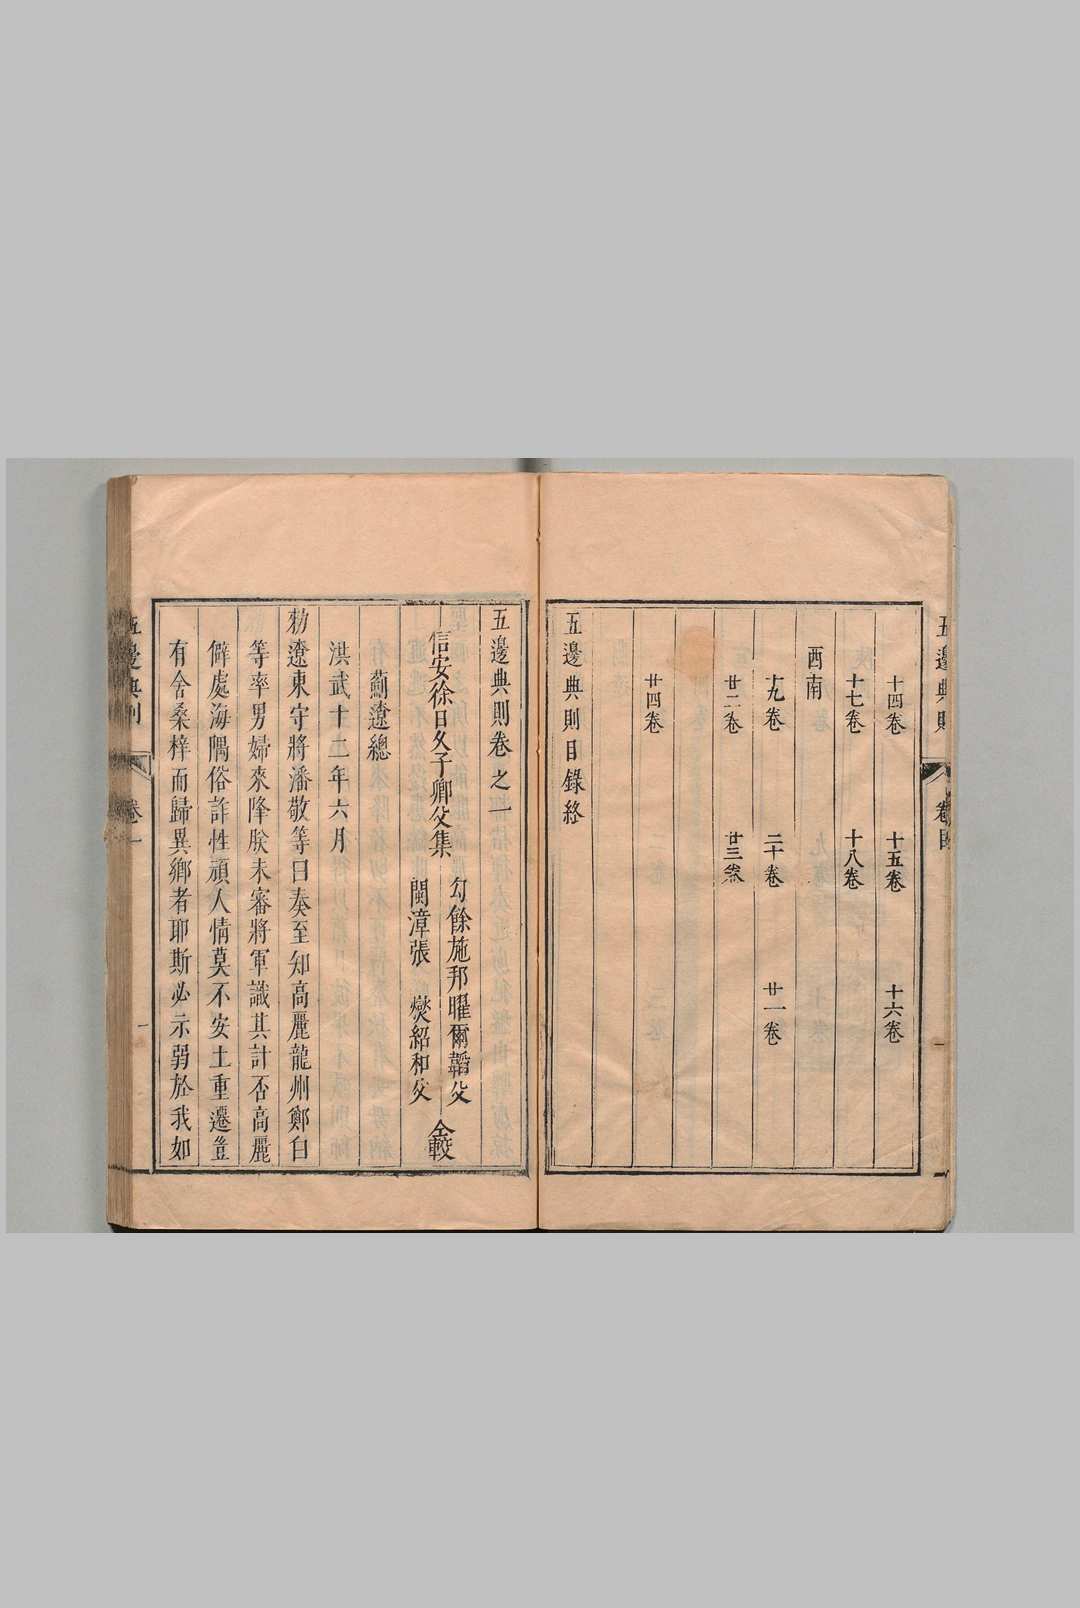 十四卷 十五卷 十六卷
十七卷 十八卷
西南
十九卷 二十卷 廿一卷
廿二卷 廿三卷
廿四卷
五邊典則目錄終
五邊典則卷之一
信安徐日久子卿父集
勾餘施邦曜爾韜父
閩漳張 燮紹和父
仝較
薊遼總
洪武十二年六月
勑遼東守將潘敬等曰奏至知高麗龍州鄭白
等率男婦來降朕未審將軍識其計否高麗
僻處海隅俗詐性頑人情莫不安土重遷豈
有舍桑梓而歸異鄉者耶斯必示弱於我如
五邊典則
卷目
卷一
一